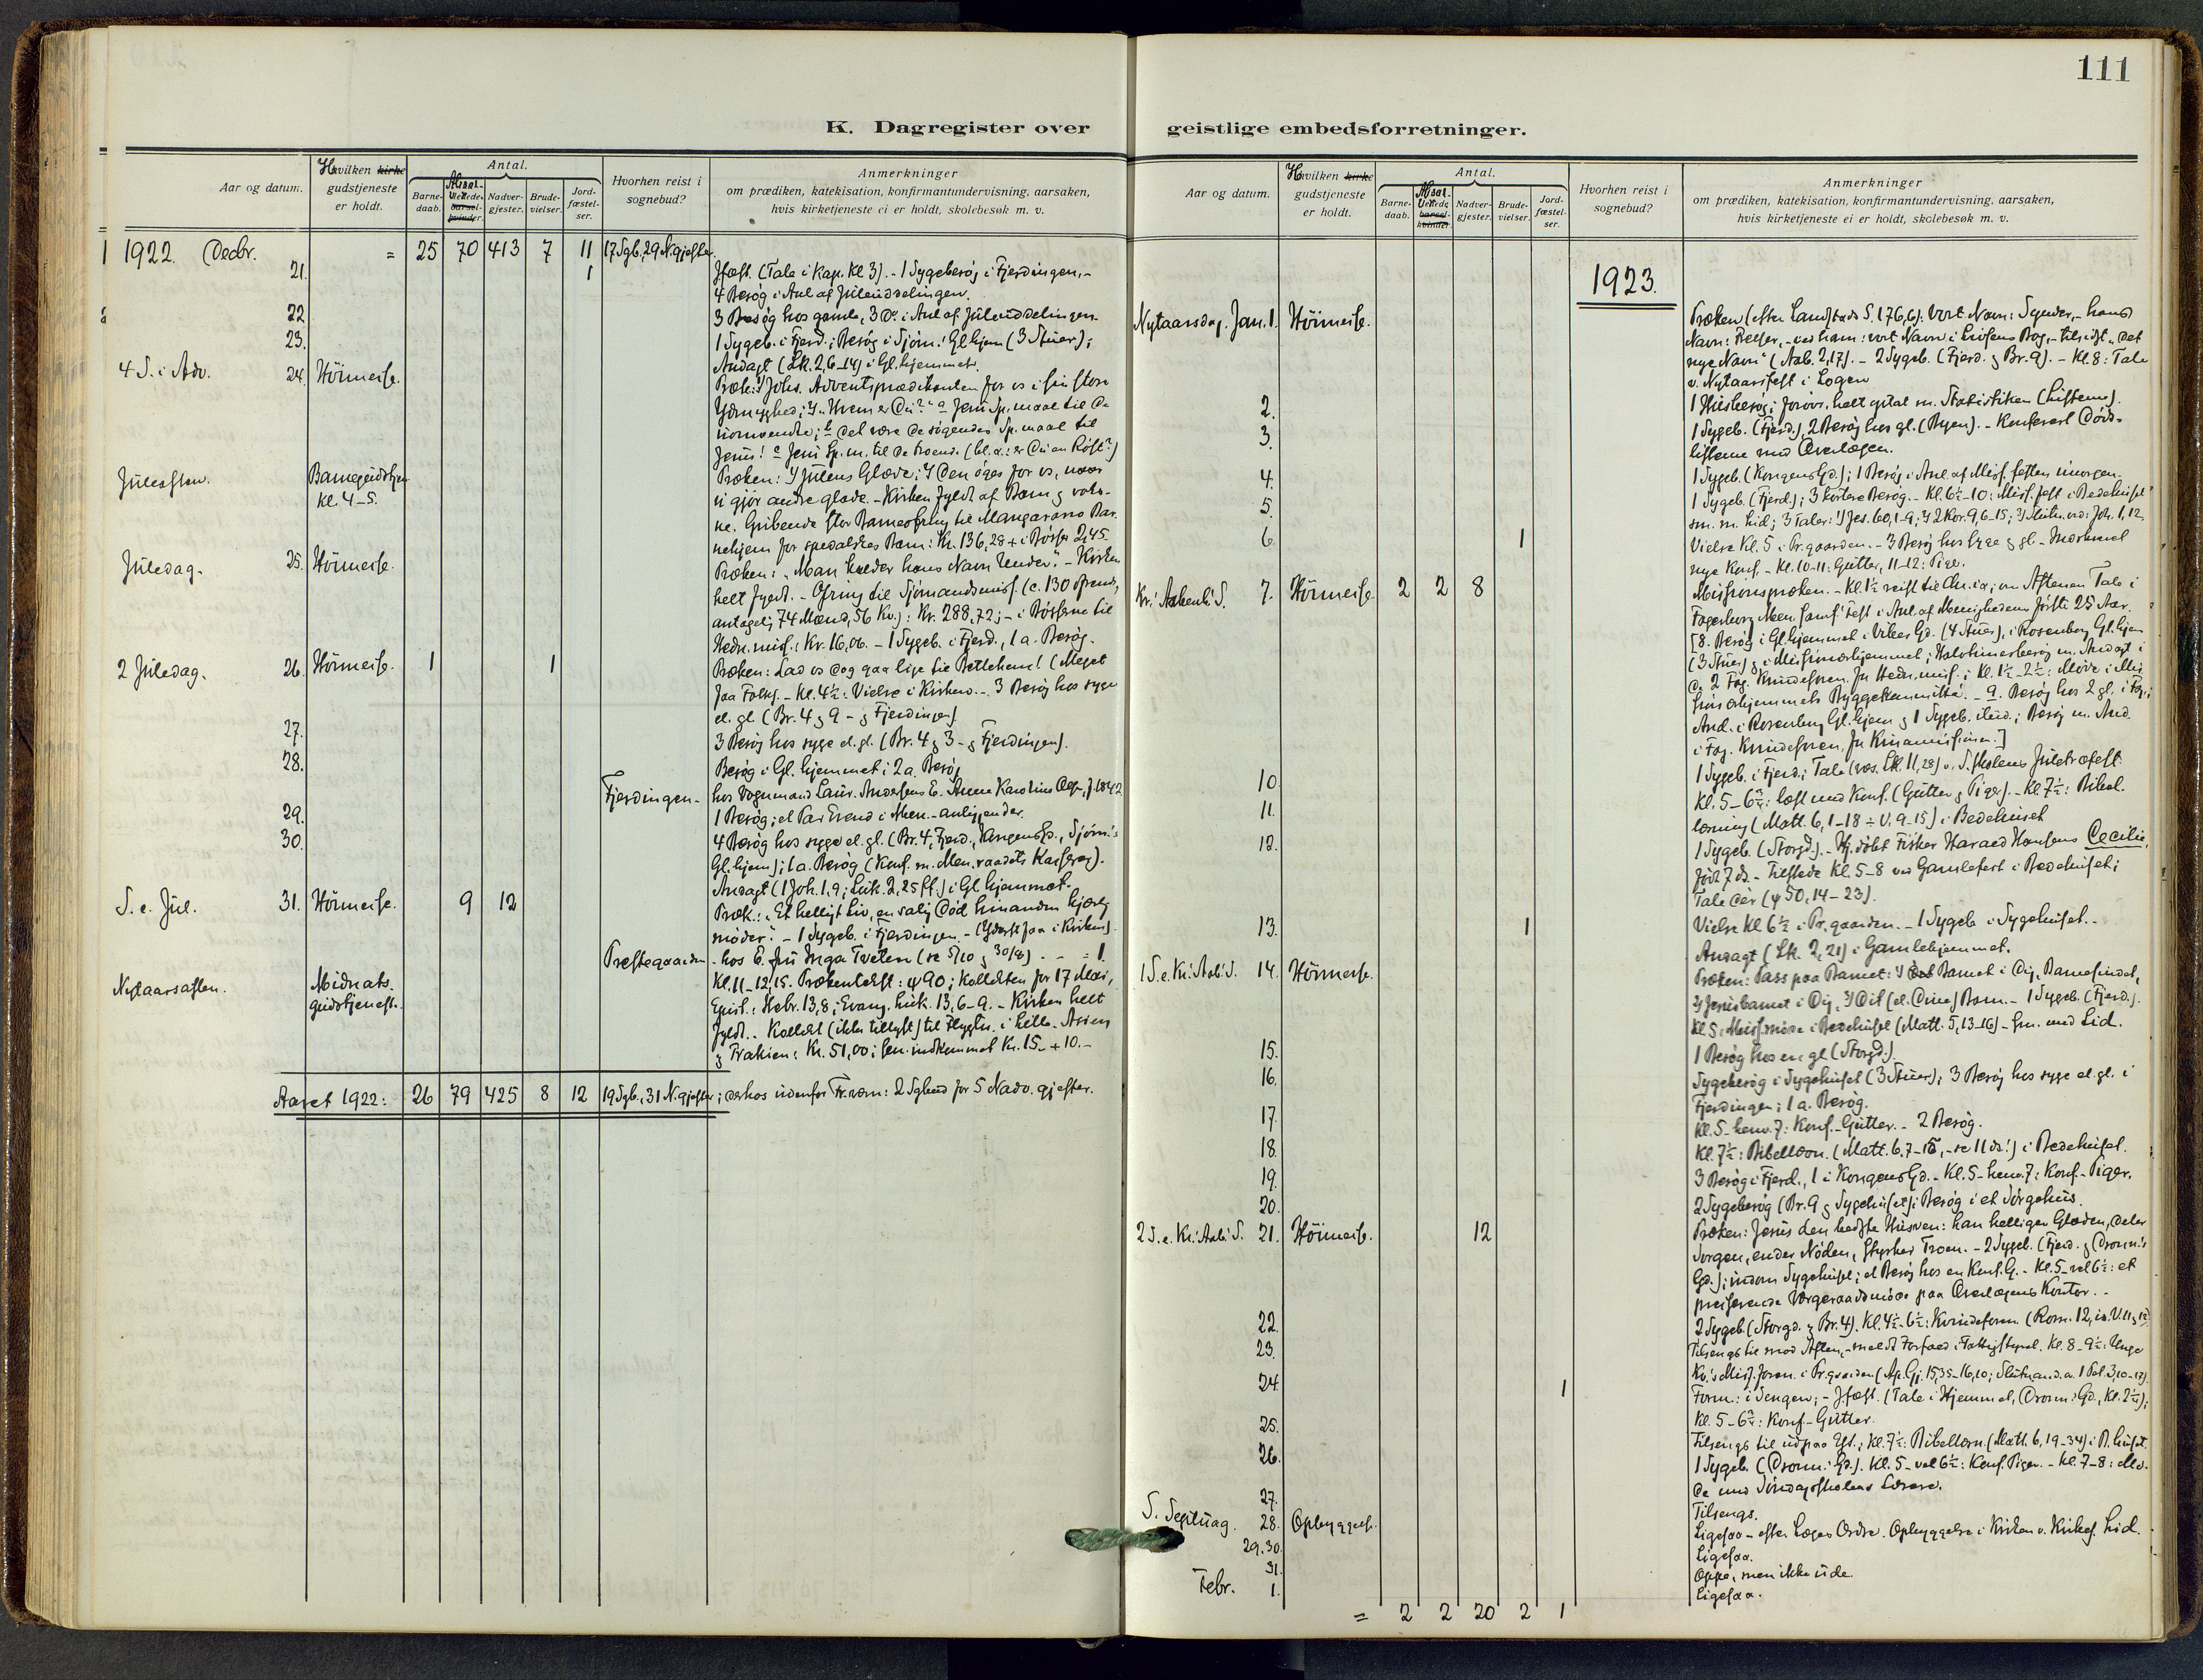 111
K. Dagregister over geistlige embedsforretninger.
Aar og datum.
Hvilken kirke gudstjeneste er holdt.
Antal.
Barne-daab.
Nadver-gjester.
Brude-vielser.
Jord-fæstel-ser.
Hvorhen reist i sognebud?
Anmerkninger
om prædiken, katekisation, konfirmantundervisning, aarsaken,
hvis kirketjeneste ei er holdt, skolebesøk m. v.
1922. Decbr. = 25 70 413 7 11 17 Sgb., 29 N.gjester.
21. 1 Jfæst. (Tale i Kap. Kl 3). - 1 Sygebesøg i Fjerdingen, -
4 Besøg i Anl. af Juleuddelingen.
22 3 Besøg hos gamle, 3 Do. i Anl. af Juleuddelingen
23. 1 Sygeb. i Fjerd.; Besøg i Sjöm.' Gl.hjem (3 Stuer);
Andagt (Lk. 2,6-14) i Gl.hjemmet.
4 S. i Adv. 24. Höimesse. Præk.: Johs. Adventsprædikanten for os i sin store
Ydmyghed; "Hvem er Du?" a Jesu Sp.maal til de
uomvendte; b det være de søgendes Sp.maal til
Jesus! c Jesu Sp.m. til de troende (bl.a.: er Du en Röst?)
Juleaften. Barnegudstjen. Præken: 1) Julens Glæde; 2) Den øges for os, naar
Kl. 4-5. vi gjør andre glade. - Kirken fyldt af Børn og voks-
ne. Gribende stor Barneofring til Mangarano Bar-
nehjem for spedalskes Børn: Kr. 136,28 + i Bösser 2,45
Juledag. 25. Höimesse. Præken: "Man kalder hans Navn Under". - Kirken
helt fyldt. - Ofring til Sjömandsmiss. (c. 130 ofrende,
antagel. 74 Mænd, 56 Kv.): Kr. 288,72; - i Bösserne til
Hedn.miss.: Kr. 16,06. - 1 Sygeb. i Fjerd., 1 a. Besøg.
2 Juledag. 26. Höimesse. 1 1 Præken: Lad os dog gaa lige til Betlehem! (Meget
faa Folk). - Kl. 4½: Vielse i Kirken. - 3 Besøg hos syge
el. gl. (Br. 4 og 9 - og Fjerdingen).
27. 3 Besøg hos syge el. gl. (Br. 4 og 3 - og Fjerdingen).
28. Besøg i Gl. hjemmet; 2 a. Besøg
Fjerdingen - hos Vognmand Laur. Andersens E. Anne Karoline f. 1842
29. 1 Besøg; et Par Ærend i Men.-anliggender.
30. 4 Besøg hos syge el. gl. (Br. 4, Fjerd., KongensGd., Sjöm.'s
Gl.hjem); 1 a. Besøg (Konf. m. Men.raadets Kasserer).
Andagt (1 Joh. 1,9; Luk. 2,25 ff.) i Gl. hjemmet.
S. e. Jul. 31. Höimesse. 9 12 Præk.: "Et helligt Liv, en salig Død hinanden kjærlig
møder". - 1 Sygeb. i Fjerdingen. - (Yderst faa i Kirken).
Prestegaarden - hos E. fru Inga Tveten (se 5/10 og 30/8) - - = 1.
Nytaarsaften. Midnats-gudstjenest. Kl. 11-12,15. Prækentekst: ψ 90; Kollekten for 17 Mai,
Epist.: Hebr. 13,8; Evang. Luk. 13,6-9. - Kirken helt
fyldt. - Kollekt (ikke tillyst) til Flygtn. i Lille-Asien
og Trakien: Kr. 51,00; sen. indkommet Kr. 15.- + 10.-
Aaret 1922: 26 79 425 8 12 19 Sgb., 31 N.gjester; derhos udenfor Fr.værn: 2 Sgbud for 5 Nadv. gjester.
1923.
Nytaarsdag. Jan. 1. Höimesse. Præken (efter Landstads S. 176,6): Vort Navn: Synder, - hans
Navn: Frelser, - ved ham: vort Navn i Livsens Bog, - tilsidst "det
nye Navn" (Aab. 2,17). - 2 Sygeb. (Fjerd. og Br. 9). - Kl. 8: Tale
v. Nytaarsfest i Logen
2. 1 Husbesøg; forøvr. helt optat m. Statistiken (Listerne).
3. 1 Sygeb. (Fjerd.), 2 Besøg hos gl. (Byen). - Konfereret Døds-
listerne med Overlægen.
4. 1 Sygeb. (KongensGd.); 1 Besøg i Anl. af Miss. festen imorgen.
5. 1 Sygeb. (Fjerd.); 3 kortere Besøg. - Kl. 6½-10: Miss.fest i Bedehuset
sm. m. Lid; 3 Taler: 1) Jes. 60,1-9; 2) 2 Kor. 9,6-15; 3) Slutn.ord: Joh. 1,12
6. 1 Vielse Kl. 5 i Pr.gaarden. - 3 Besøg hos syge og gl. - Indskrevet
nye Konf. - Kl. 10-11: Gutter, 11-12: Piger.
Kr.' Aabenb.' S. 7. Höimesse 2 2 8 Missionspræken. - Kl. 1½ reist til Chr.ia; om Aftenen Tale i
Fagerborg Men.samf.' Fest i Anl. af Menighedens første 25 Aar.
[8. Besøg i Gl.hjemmet i Vibes Gd. (4 Stuer), i Rosenborg Gl.hjem
(3 Stuer) og i Missionærhjemmet; Halvtimesbesøg m. Andagt i
de 2 Fag. Kvindeforen. for Hedn.miss.; Kl. 1½-2½: Møde i Mis
sionærhjemmets Byggekommitté. - 9. Besøg hos 2 gl. i Fag.;
And. i Rosenborg Gl.hjem og 1 Sygeb. ; Besøg m. And.
i Fag. Kvindeforen. for Kinamissionen.]
10. 1 Sygeb. i Fjerd.; Tale (væs. Lk. 11,28) v. S.skolens Juletræfest.
11. Kl. 5-6¾: læst med Konf. (Gutter og Piger). - Kl. 7½: Bibel-
læsning (Matt. 6,1-18 ÷ V. 9-15) i Bedehuset
12. 1 Sygeb. (Storgd.). - Hj.døbt Fisker Harald Hansens Cecilie,
født 7 ds. - Tilstede Kl. 5-8 ved Gamlefest i Bedehuset;
Tale der (ψ 50, 14-23).
13. 1 Vielse Kl 6½ i Pr.gaarden. - 1 Sygeb. i Sygehuset. -
Andagt (Lk. 2,21) i Gamlehjemmet.
1 S. e. Kr.' Aab.' S. 14. Höimesse. Præken: Pass paa Barnet: 1) Barnet i Dig, Barnesindet,
2) Jesusbarnet i Dig, 3) Dit (el. Dine) Børn. - 1 Sygeb. (Fjerd.).
Kl 5: Miss.møde i Bedehuset (Matt. 5,13-16) - sm. med Lid.
15. 1 Besøg hos en gl. (Storgd.).
16. Sygebesøg i Sygehuset (3 Stuer); 3 Besøg hos syge el. gl. i
Fjerdingen; 1 a. Besøg.
17. Kl. 5-henv. 7: Konf.-Gutter. - 2 Besøg.
18. Kl. 7½: Bibellæsn. (Matt. 6,7-15, - se 11 ds.!) i Bedehuset.
19. 3 Besøg i Fjerd., 1 i KongensGd. - Kl. 5-henv. 7: Konf.-Piger.
20. 2 Sygebesøg (Br. 9 og Sygehuset); Besøg i et Sørgehus.
2 S. e. Kr.' Aab.' S. 21. Höimesse. 12 Præken: Jesus den bedste Husven: han helliger Glæden, deler
Sorgen, ender Nøden, styrker Troen. - 2 Sygeb. (Fjerd. og Dronn.'s
Gd.); indom Sygehuset; et Besøg hos en Konf.G. - Kl. 5-vel 6½: et
presserende Vergeraadsmøde paa Overlægens Kontor. -
22. 2 Sygeb. (Storgd. og Br. 4). Kl. 4½-6½: Kvindeforen. (Rom. 12, is. V. 11 og 12)
23. Tilsengs til mod Aften, - meldt Forfald i Fattigstyret. Kl. 8-9½: Unge
Kv.'s Miss.foren. i Pr.gaarden (Ap.Gj. 15,35-16,10; Slutn.and. o. 1 Pet. 3,10-17).
24. 1 Form.: i Sengen; - Jfæst. (Tale i Hjemmet, Dronn.' Gd., Kl. 2¼);
Kl. 5-6¾: Konf.-Gutter.
25. Tilsengs til udpaa Eft.; Kl. 7½: Bibellæsn. (Matt. 6,19-34) i B.huset.
26. 1 Sygeb. (Dronn.' Gd.). Kl. 5-vel 6½: Konf. Piger. - Kl. 7-8: Mø-
de med Søndagsskolens Lærere.
27. Tilsengs.
S. Septuag. 28. Opbyggels. Ligesaa - efter Læges Ordre. Opbyggelse i Kirken v. Kirkes. Lid.
29.30. Ligesaa.
31. Oppe, men ikke ude.
Febr. 1. Ligesaa.
= 2 2 20 2 1